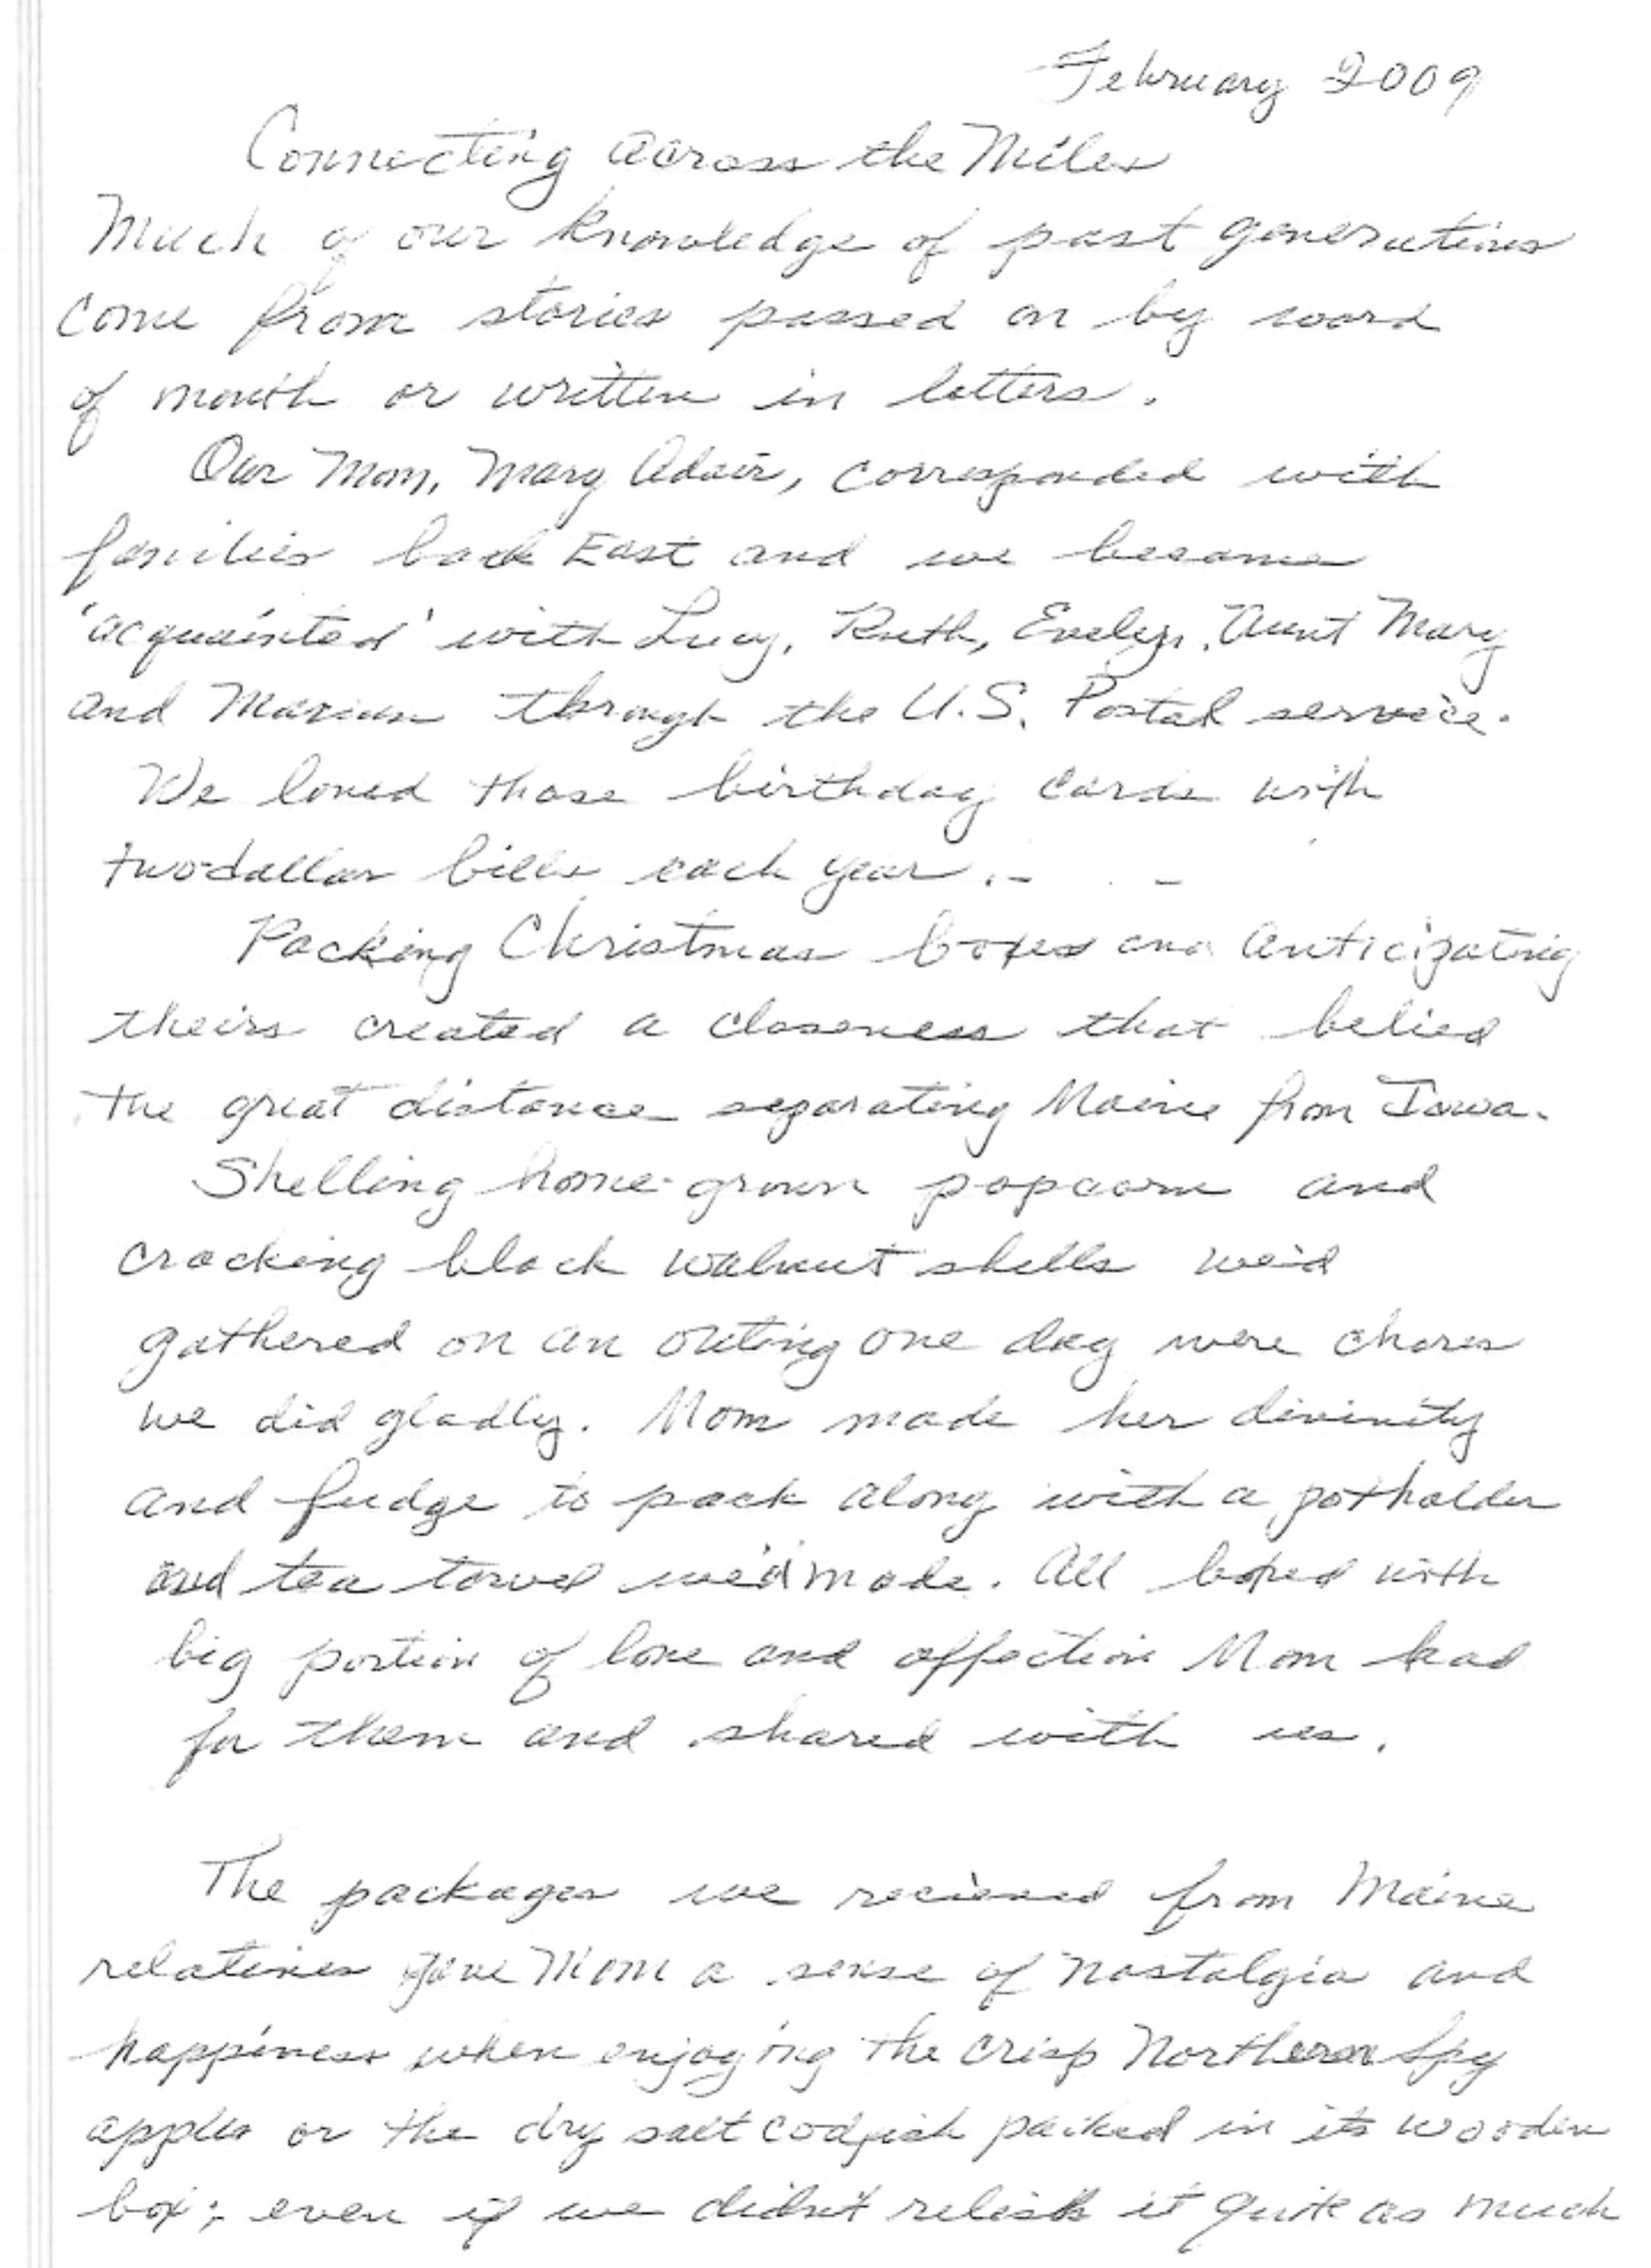 February 2009
Connecting across the Miles
Much of our knowledge of past generations
come from stories passed on by word
of mouth or written in letters.
Our Mom, Mary Adair, corresponded with
families back East and we became
'acquainted' with Lucy, Ruth, Evelyn, Aunt Mary
and Marian through the U.S. Postal service.
We loved those birthday cards with
two-dollar bills each year.
Packing Christmas boxes and anticipating
theirs created a closeness that belied
the great distance separating Maine from Iowa.
Shelling home-grown popcorn and
cracking black walnut shells we'd
gathered on an outing one day were chores
we did gladly. Mom made her divinity
and fudge to pack along with a potholder
and tea towel we'd made. All boxed with
big portion of love and affection Mom had
for them and shared with us.
The packages we recieved from Maine
relatives gave Mom a sense of nostalgia and
happiness when enjoying the crisp Northern Spy
apples or the dry salt codfish packed in its wooden
box; even if we didn't relish it quite as much